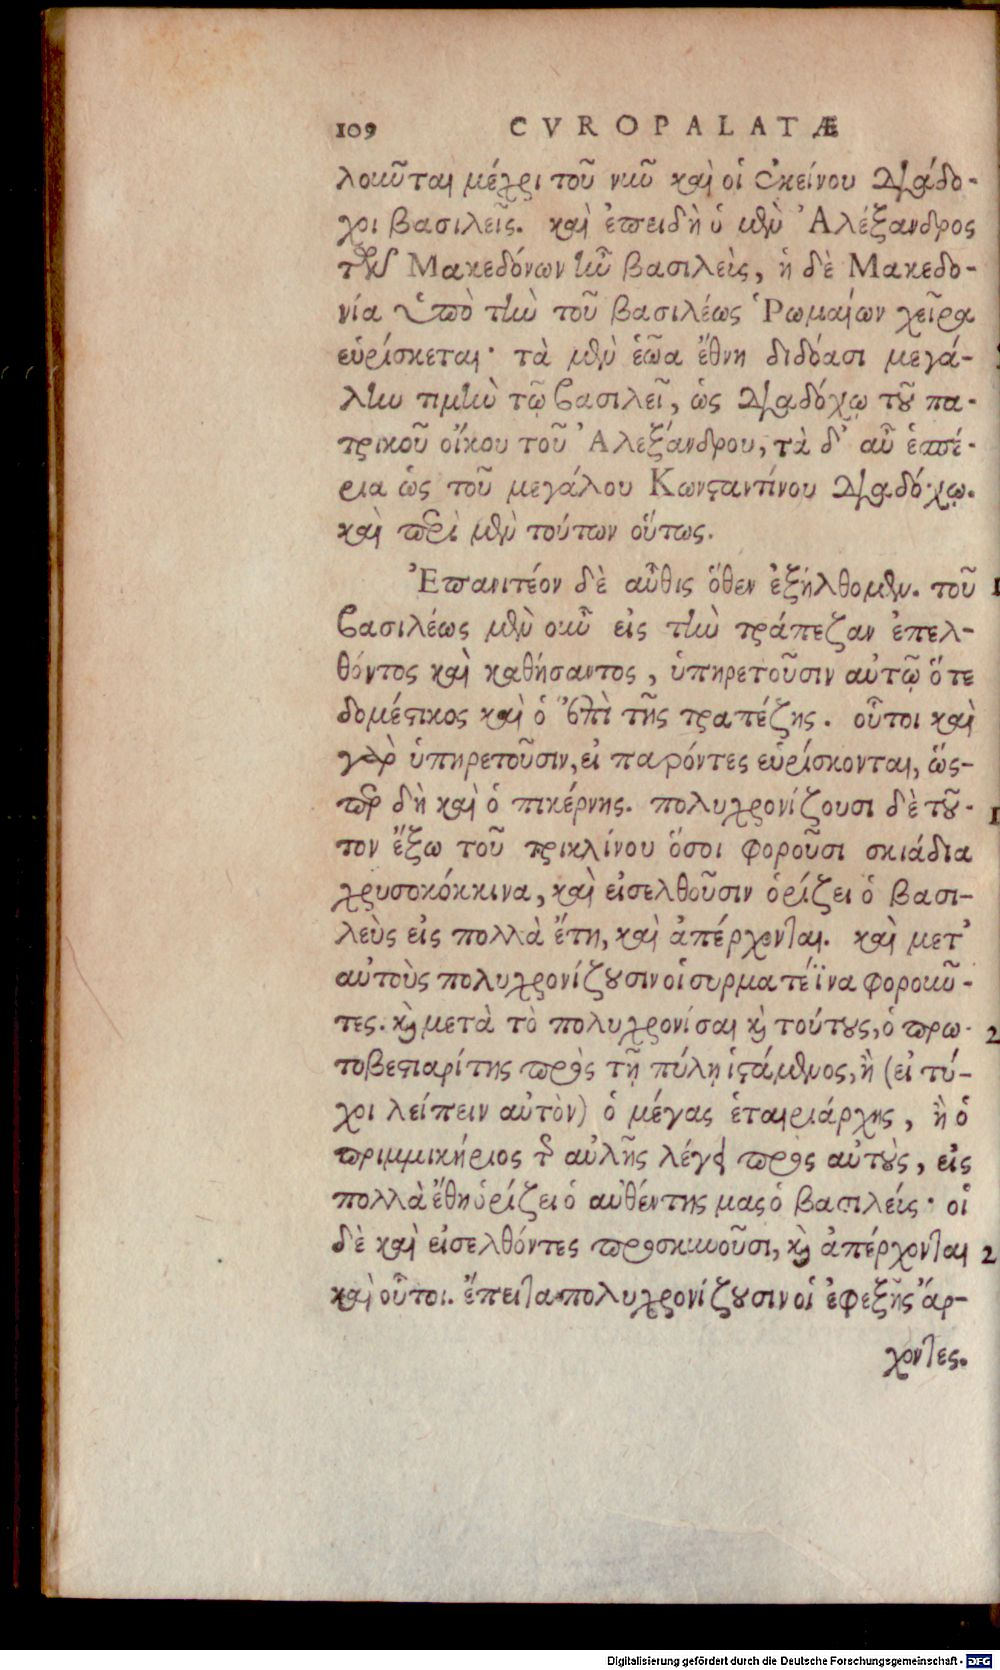 109 CVROPALATÆ
λοιῦται μέχρι τοῦ νιῦ καὶ οἱ ἐκείνου διάδο-
χοι βασιλεῖς. καὶ ἐπειδὴ ὁ μὲν Ἀλέξανδρος
τῶν Μακεδόνων ἦν βασιλεὺς, ἡ δὲ Μακεδο-
νία ὑπὸ τὴν τοῦ βασιλέως Ῥωμαίων χεῖρα
εὑρίσκεται· τὰ μὲν ἑῶα ἔθνη διδόασι μεγά-
λην τιμὴν τῷ βασιλεῖ, ὡς διαδόχῳ τοῦ πα-
τρικοῦ οἴκου τοῦ Ἀλεξάνδρου, τὰ δ' αὖ ἑσπέ-
ρια ὡς τοῦ μεγάλου Κωνσταντίνου διαδόχῳ.
καὶ περὶ μὲν τούτων οὕτως.
Ἐπανιτέον δὲ αὖθις ὅθεν ἐξήλθομεν. τοῦ
βασιλέως μὲν οὖν εἰς τὴν τράπεζαν ἐπελ-
θόντος καὶ καθήσαντος, ὑπηρετοῦσιν αὐτῷ ὅτε
δομέστικος καὶ ὁ ἐπὶ τῆς τραπέζης. οὗτοι καὶ
γὰρ ὑπηρετοῦσιν, εἰ παρόντες εὑρίσκονται, ὥς-
περ δὴ καὶ ὁ πικέρνης. πολυχρονίζουσι δὲ τοῦ-
τον ἔξω τοῦ τρικλίνου ὅσοι φοροῦσι σκιάδια
χρυσοκόκκινα, καὶ εἰσελθοῦσιν ὁρίζει ὁ βασι-
λεὺς εἰς πολλὰ ἔτη, καὶ ἀπέρχονται. καὶ μετ'
αὐτοὺς πολυχρονίζουσιν οἱ συρματέϊνα φοροιῦ-
τες. καὶ μετὰ τὸ πολυχρονίσαι καὶ τούτους, ὁ πρω-
τοβεστιαρίτης πρὸς τῇ πύλῃ ἱστάμενος, ἢ (εἰ τύ-
χοι λείπειν αὐτὸν) ὁ μέγας ἑταιριάρχης, ἢ ὁ
πριμμικήριος τῆς αὐλῆς λέγει πρὸς αὐτοὺς, εἰς
πολλὰ ἔθη ὁρίζει ὁ αὐθέντης μας ὁ βασιλεύς· οἱ
δὲ καὶ εἰσελθόντες προσκυνοῦσι, καὶ ἀπέρχονται
καὶ οὗτοι. ἔπειτα πολυχρονίζουσιν οἱ ἐφεξῆς ἄρ-
χοντες.
Digitalisierung gefördert durch die Deutsche Forschungsgemeinschaft - DFG